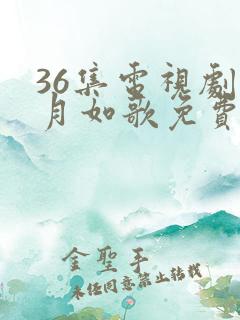 36集電視劇
月如歌免費
金聖手
未經同意禁止轉載